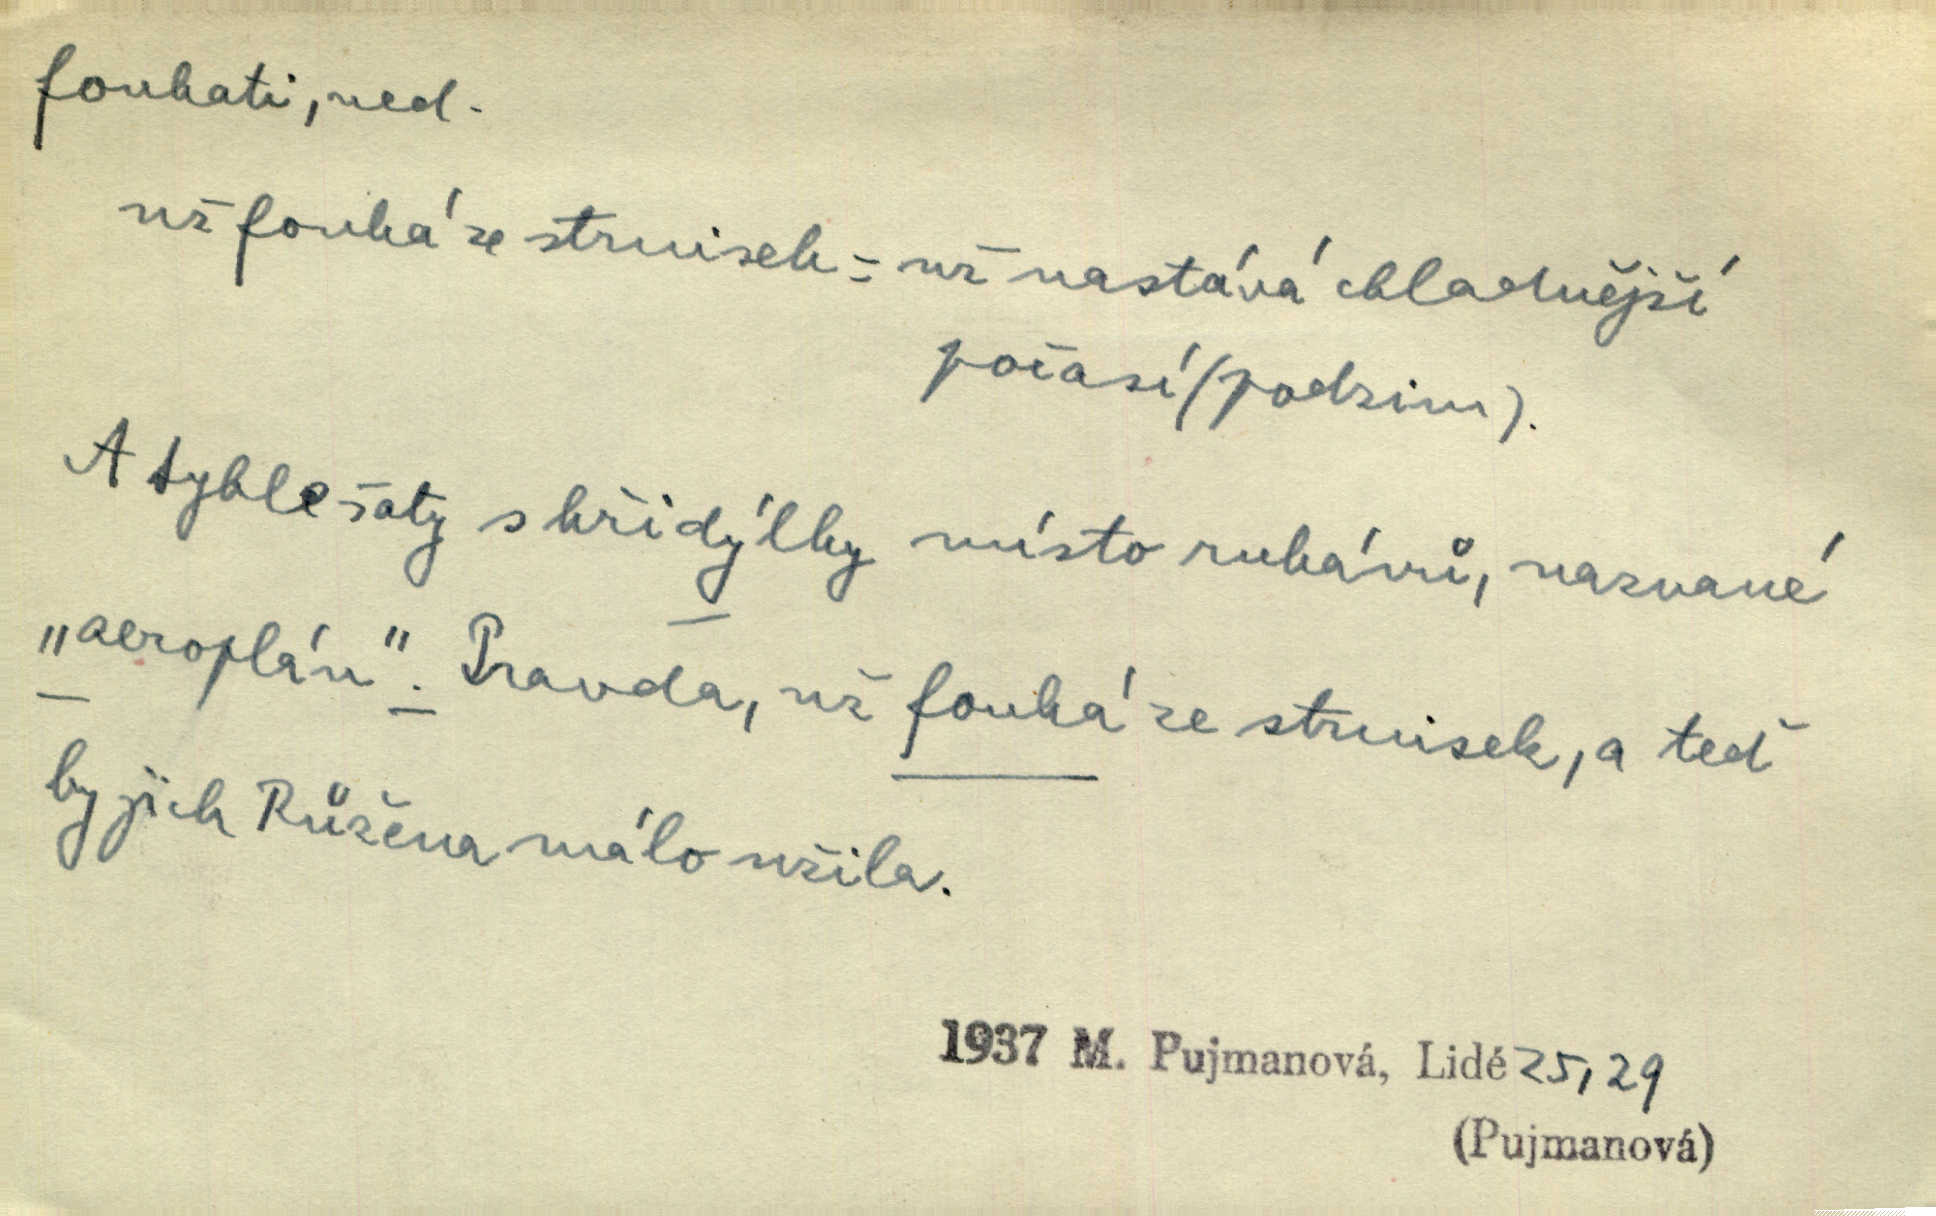 foukati, ned.
už fouká ze strnisek = už nastává chladnější
počasí (podzim).
A tyhle šaty s křidýlky místo rukávů, nazvané
„aeroplán“. Pravda, už fouká ze strnisek, a teď
by jich Růžena málo užila.
1937 M. Pujmanová, Lidé 25, 29
(Pujmanová)